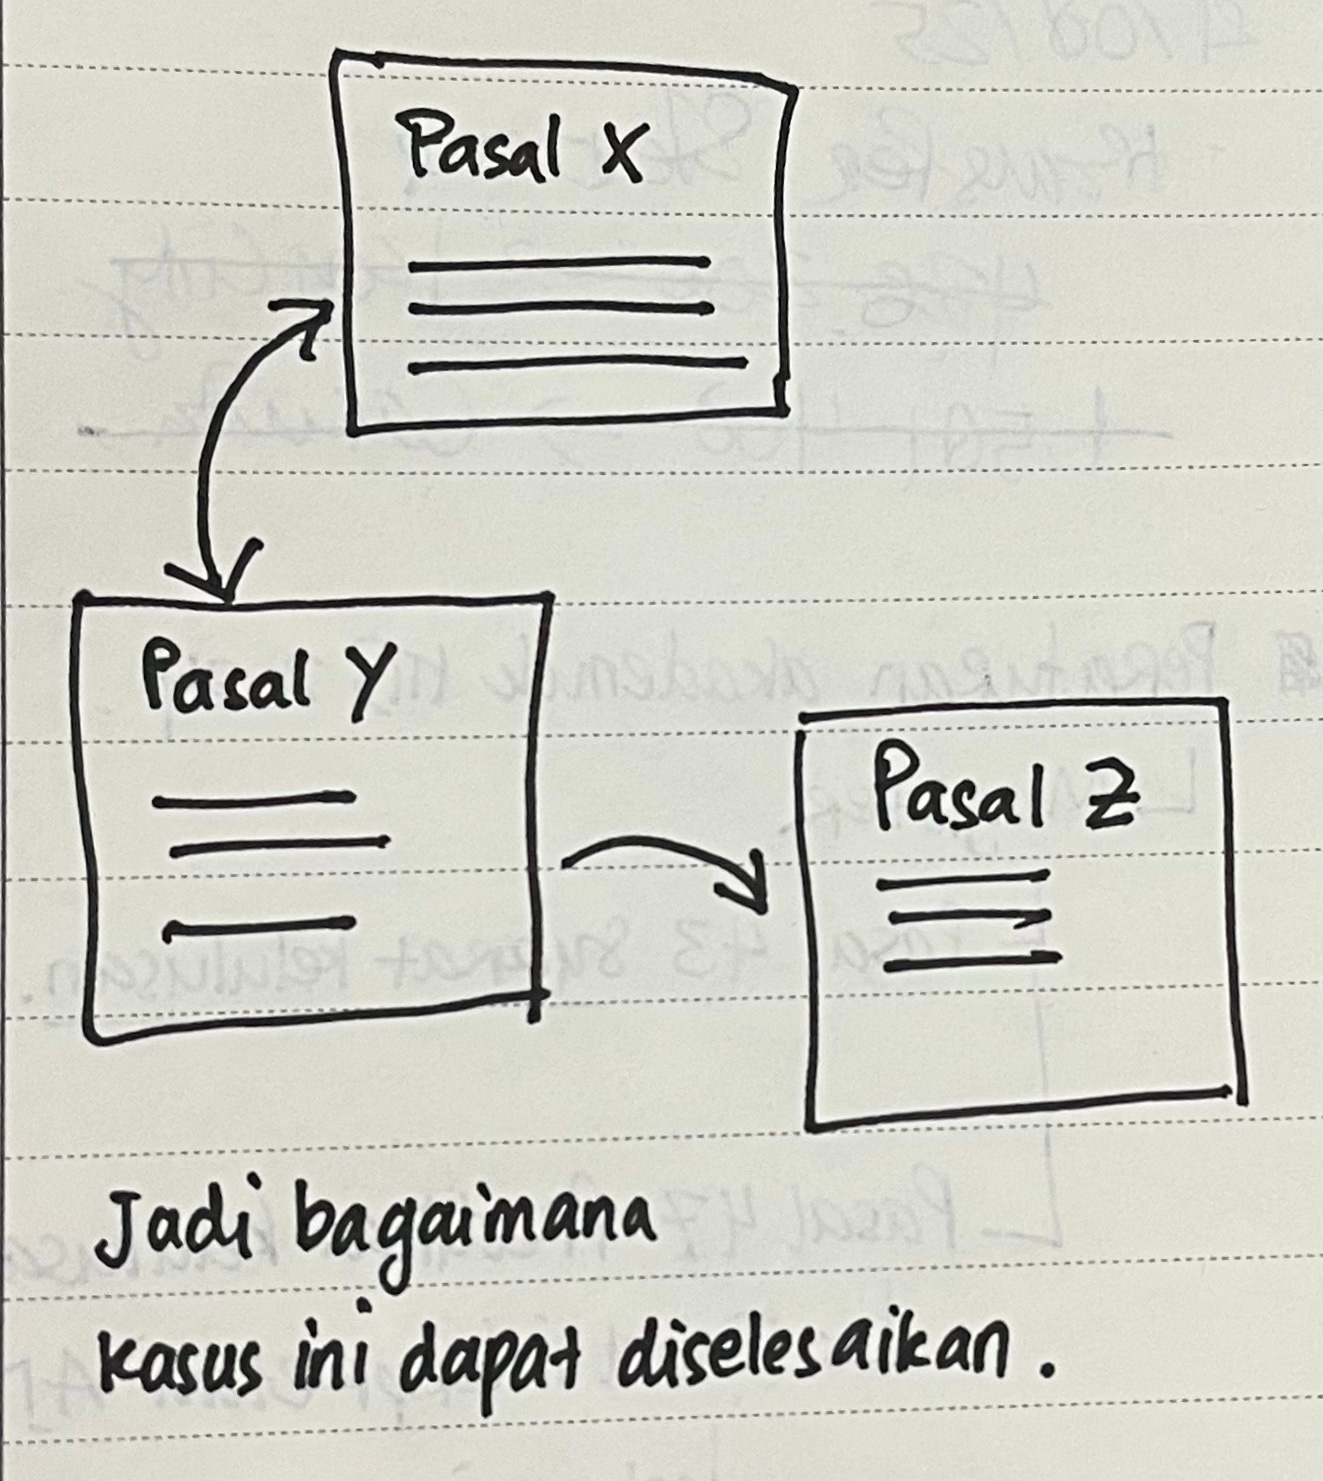 Pasal X
Pasal Y
Pasal Z
Jadi bagaimana
kasus ini dapat diselesaikan.